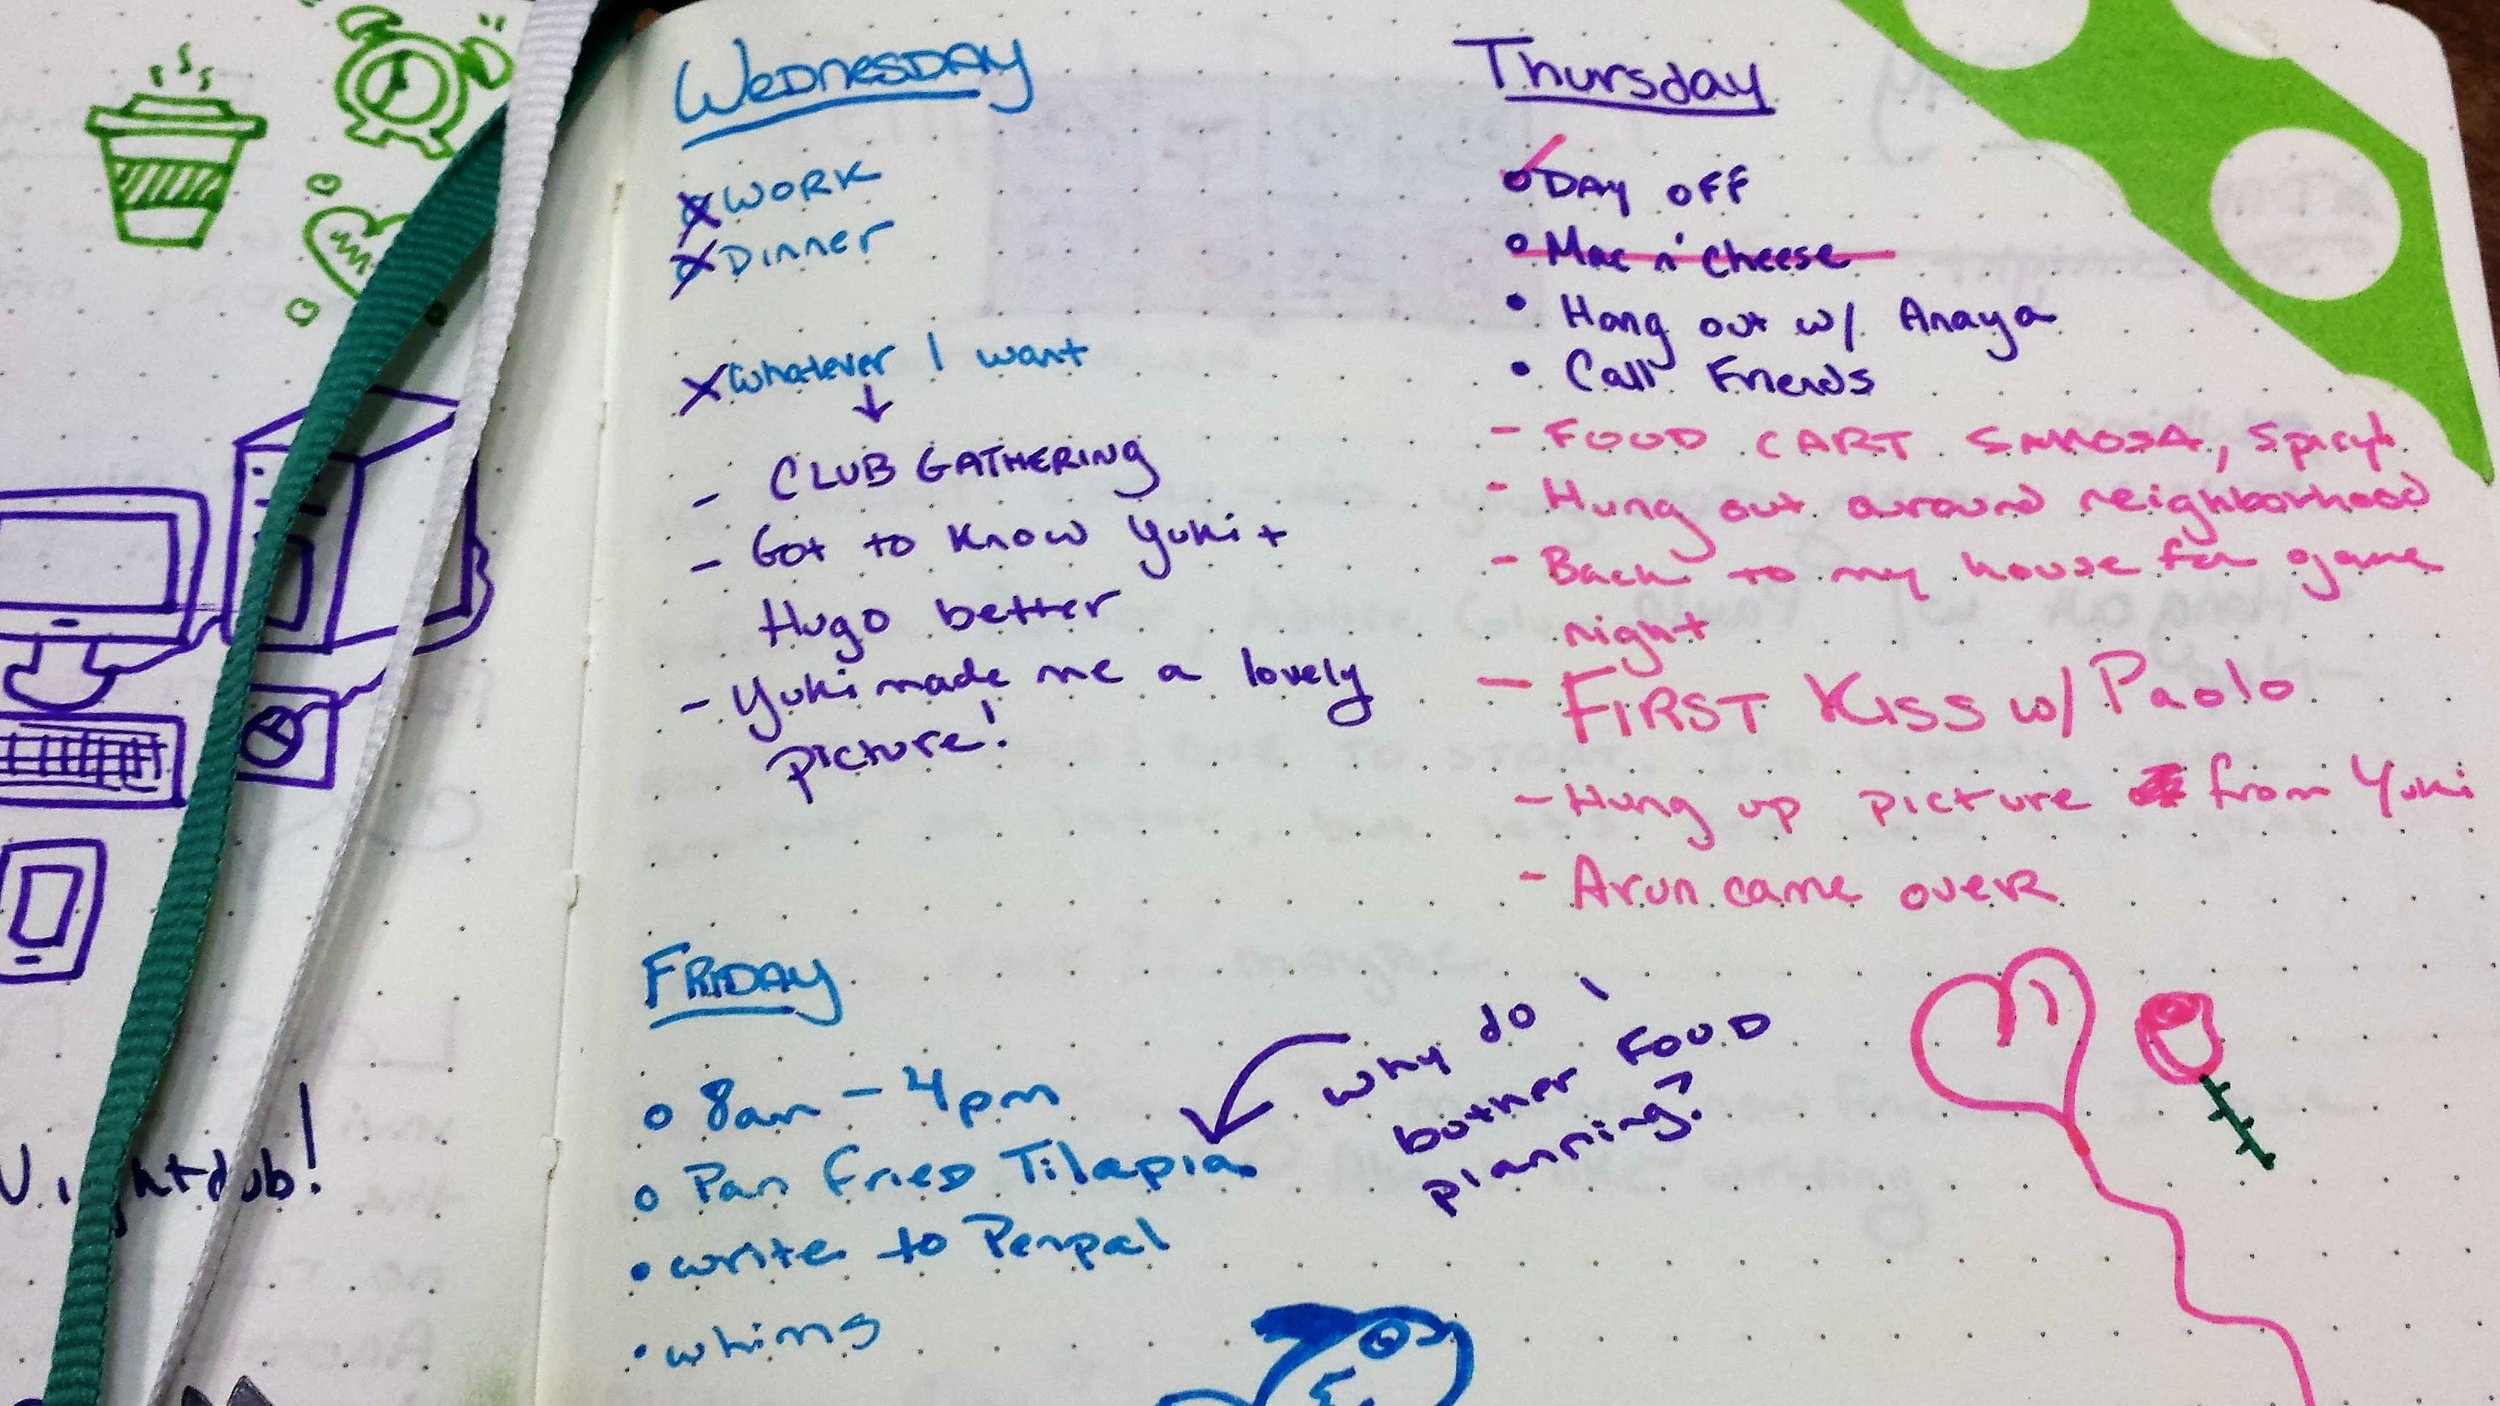 Wednesday
WORK
Dinner
Whatever I want
- CLUB GATHERING
- Got to know Yuki +
Hugo better
- Yuki made me a lovely
picture!
Thursday
DAY OFF
Mac n' cheese
Hang out w/ Anaya
Call Friends
- FOOD CART SAMOSA, Spicy!
- Hung out around neighborhood
- Back to my house for game
night
- FIRST KISS w/ Paolo
- Hung up picture from Yuki
- Arun came over
FRIDAY
8am - 4pm
Pan Fried Tilapia
write to Penpal
whims
why do I
bother FOOD
planning?